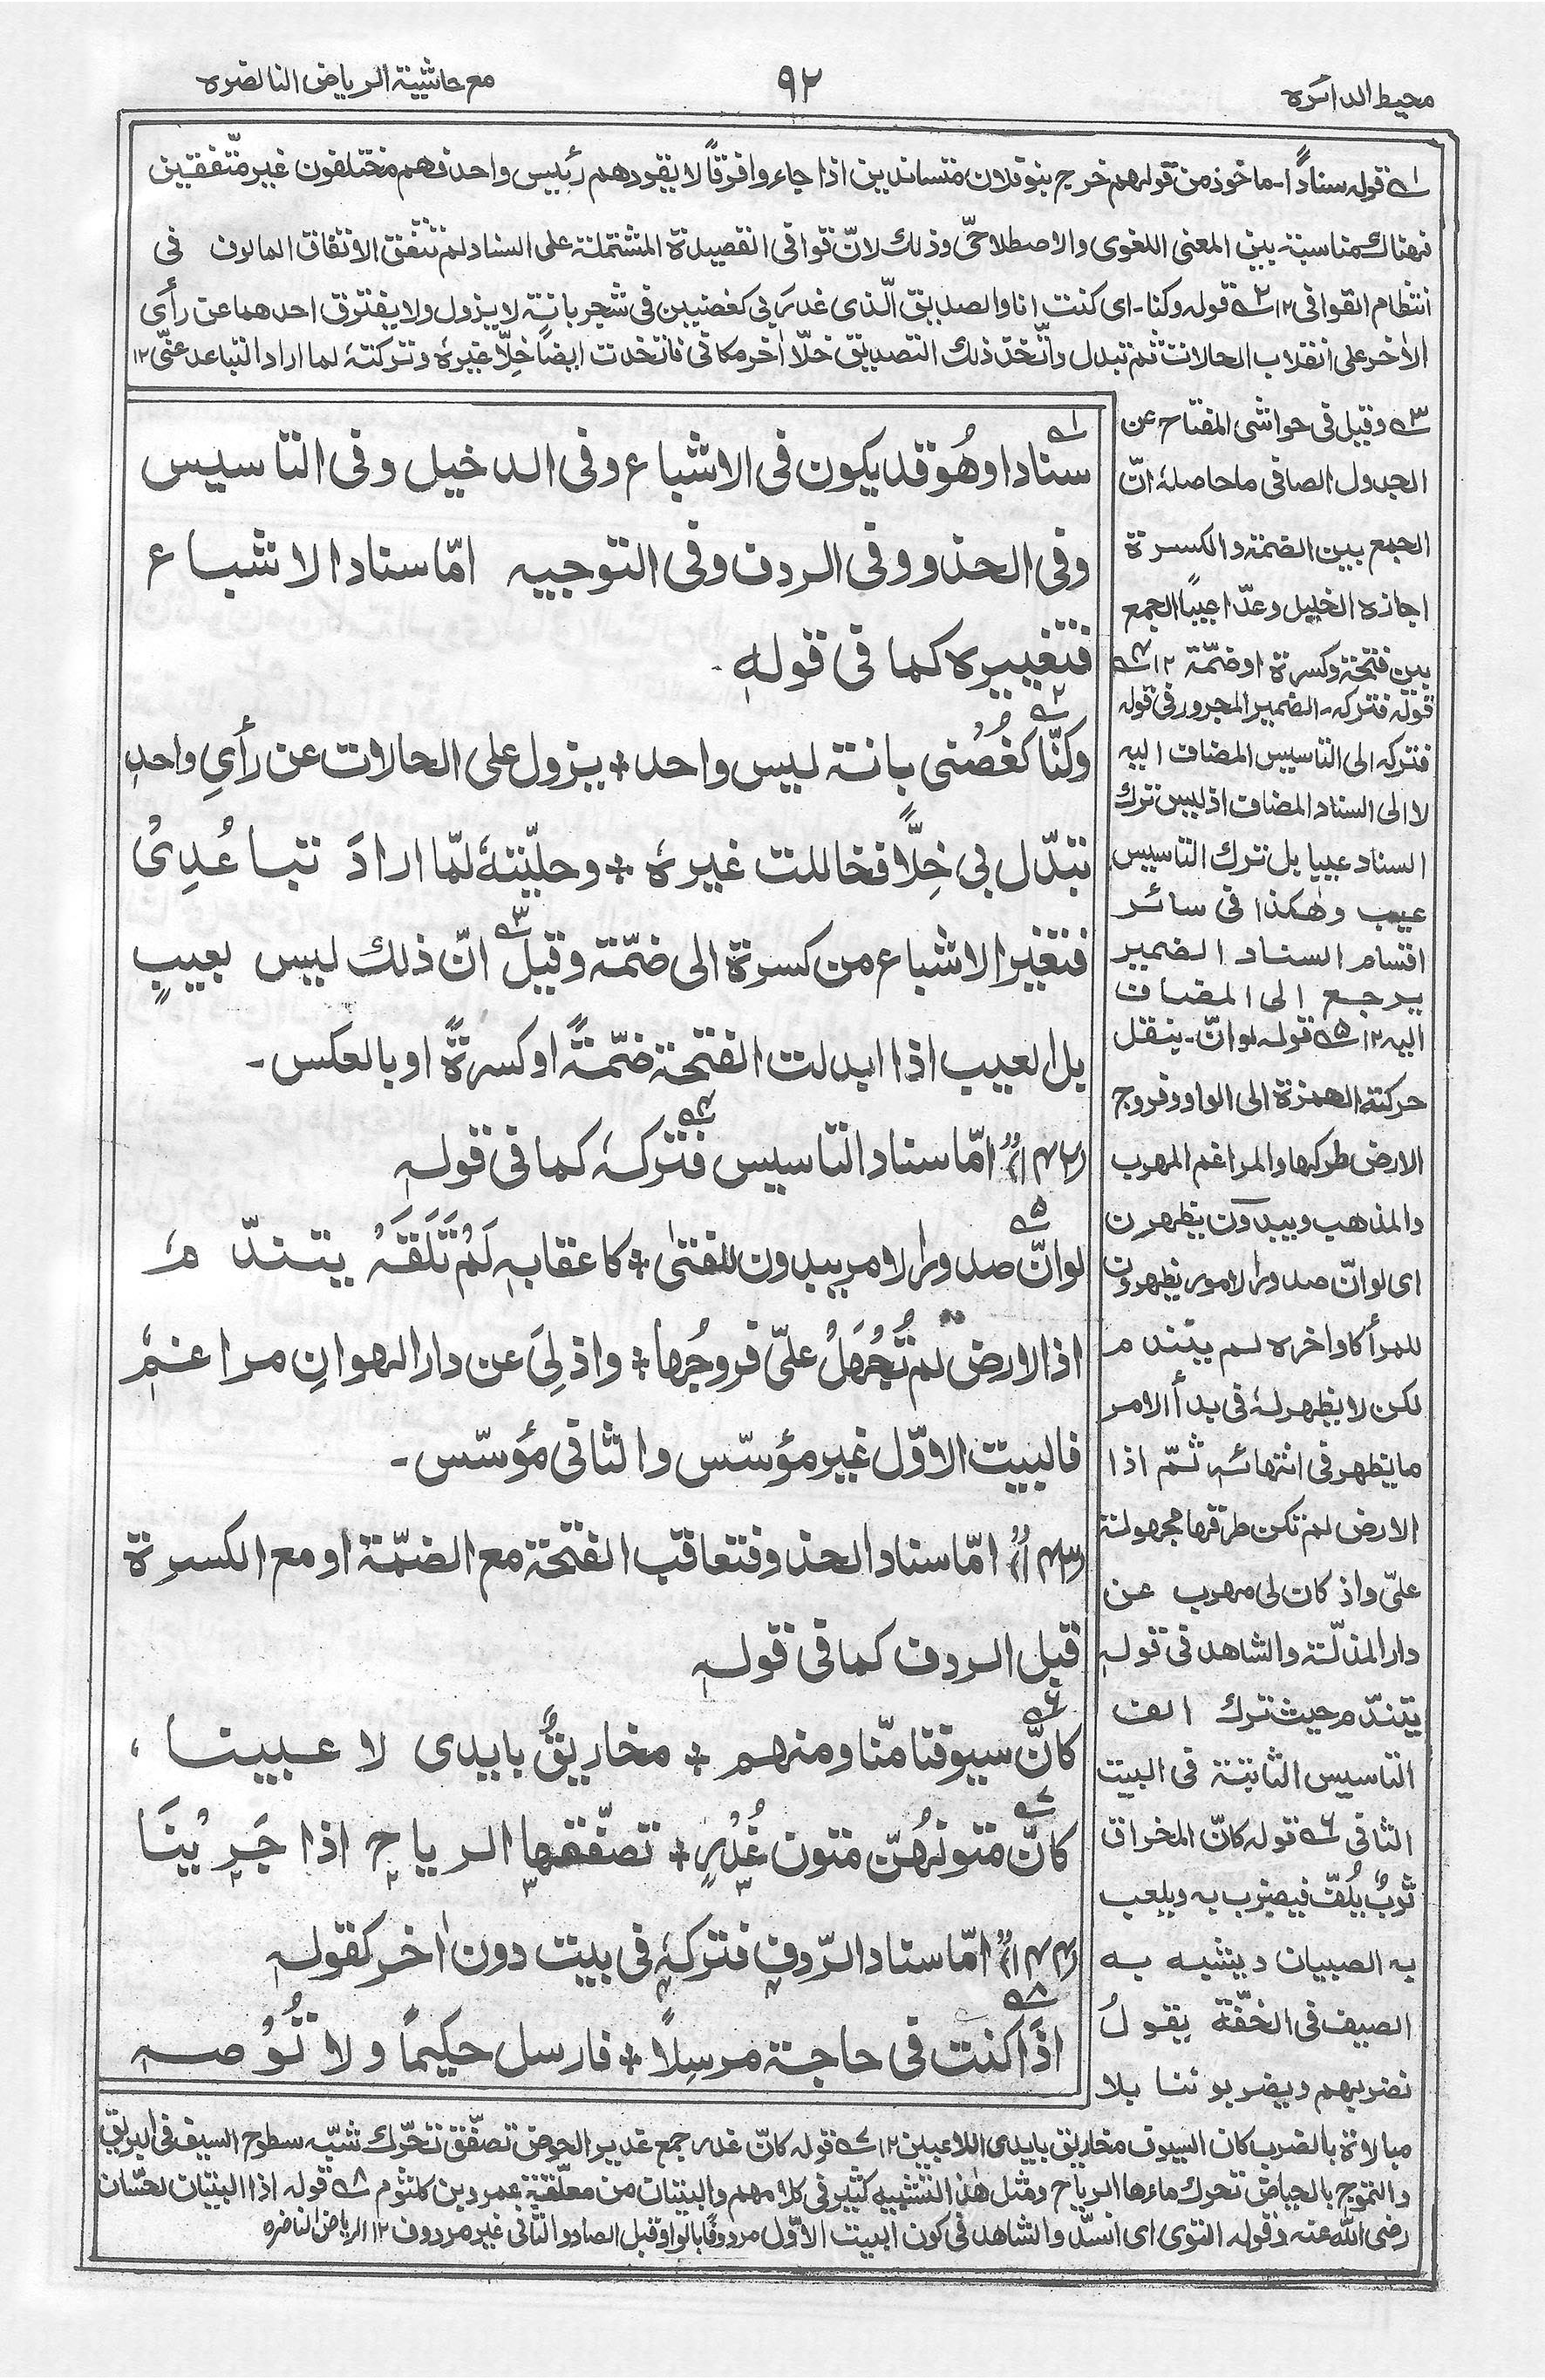 محيط الدائره
٩٢
مع حاشية الرياض الناضره
١ـه قوله سنادًا۔ ماخوذ من قولهم خرج بنو فلان متساندين اذا جاءوا فرقاً لا يقودهم رئيس واحد فهم مختلفون غير متّفقين
فهناك مناسبة بين المعنى اللغوى والاصطلاحىّ وذلك لانّ قوافى القصيدة المشتملة على السناد لم تتفق الاتفاق المالوف فى
انتظام القوافى ١٢ ٢ـه قوله وكنا۔ اى كنت انا والصديق الّذى غدر بى كغصنين فى شجر بانة لا يزول ولا يفترق احدهما عن رأى
الاٰخر على انقلاب الحالات ثم تبدل واتّخذ ذلك الصديق خلّا اٰخر مكانى فاتخذت ايضاً خِلّا غيرهٗ وتركتهٗ لما اراد التباعد عنّى ١٢
سنادا وهُو قد يكون فى الاشباع وفى الدخيل وفى التاسيس
وفى الحذو وفى الردف وفى التوجيه امّا سناد الاشباع
فتغييره كما فى قولهٖ۔
وكنّا كغُصْنى بانة ليس واحد ؞ يزول على الحالات عن رأىِ واحدِ
تبدّل بى خِلًّا فخاللت غيرهٗ ؞ وخلّيتهٗ لمّا ارادَ تباعُدِىْ
فتغيّر الاشباع من كسرة الى ضمّة وقيل٣ـه انّ ذلك ليس بعيبٍ
بل العيب اذا ابدلت الفتحة ضمّةً او كسرةً او بالعكس۔
(١٤٢) امّا سناد التاسيس فتركهٗ٤ـه كما فى قولهٖ
لوانّ صدور الامر يبدون للفتىٰ ؞ كاعقابهٖ لَمْ تَلْقَهٗ يتندّمٗ
اذا الارض لم تُجْهَلْ علىّ فروجُها ؞ واذ لِىَ عن دار الهوانِ مراغمٗ
فالبيت الاوّل غير مؤسّس والثانى مؤسّس۔
(١٤٣) امّا سناد الحذو فتعاقب الفتحة مع الضمّة او مع الكسرة
قبل الردف كما فى قولهٖ
كانّ سيوفنا منّا ومنهم ؞ مخاريقٌ بايدى لاعبينا،
كانّ متونهُنّ متون غُدْرٍ ؞ تصفّقها الرياح اذا جَرَيْنَا
(١٤٤) امّا سناد الرّدف فتركهٗ فى بيت دون اٰخر كقولهٖ
اذَا كنت فى حاجة مرسِلًا ؞ فارسل حكيمًا ولا تُوْصهٖ
٣ـه وقيل فى حواشى المفتاح عن
الجدول الصافى ما حاصلهٗ انّ
الجمع بين الضمة والكسرة
اجازه الخليل وعدّا عيباً الجمع
بين فتحة وكسرة او ضمّة ١٢ ٤ـه
قوله فتركه۔ الضمير المجرور فى قوله
فتركه الى التاسيس المضاف اليه
لا الى السناد المضاف اذ ليس ترك
السناد عيبا بل ترك التاسيس
عيب وهٰكذا فى سائر
اقسام السناد الضمير
يرجع الى المضاف
اليه ١٢ ٥ـه قوله لوانّ۔ ينقل
حركة الهمزة الى الواو وفروج
الارض طركها والمراغم المهرب
والمذهب ويبدون يظهرن
اى لو انّ صدور الامور يظهرون
للمرأ كاواخره لم يتندم
لكن لا يظهر لهٗ فى بدأ الامر
ما يظهر فى انتهائه ثمّ اذا
الارض لم تكن طرقها مجهولة
علىّ واذ كان لى مهرب عن
دار المذلّة والشاهد فى قولهٖ
يتندّم حيث ترك الف
التاسيس الثابتة فى البيت
الثانى ٦ـه قوله كانّ المخراق
ثوبٌ يُلفّ فيضرب به ويلعب
به الصبيان ويشبه به
الصيف فى الخفّة يقولُ
نضربهم ويضربوننا بلا
مبالاة بالضرب كان السيوف مخاريق بايدى اللاعبين ١٢ ٧ـه قوله كانّ غدر جمع غدير الحوض تصفّق تحرّك شبّه سطوح السيف فى البريق
والتموج بالحياض تحرك ماءها الرياح ومثل هٰذا التشبيه كثير فى كلامهم والبيتان من معلّقة عمرو بن كلثوم ٨ـه قوله اذا البيتان لحسّان
رضى الله عنه وقوله التوى اى انسدّ والشاهد فى كون البيت الاوّل مردوفًا بالواو قبل الصاد والثانى غير مردوف ١٢ الرياض الناضره